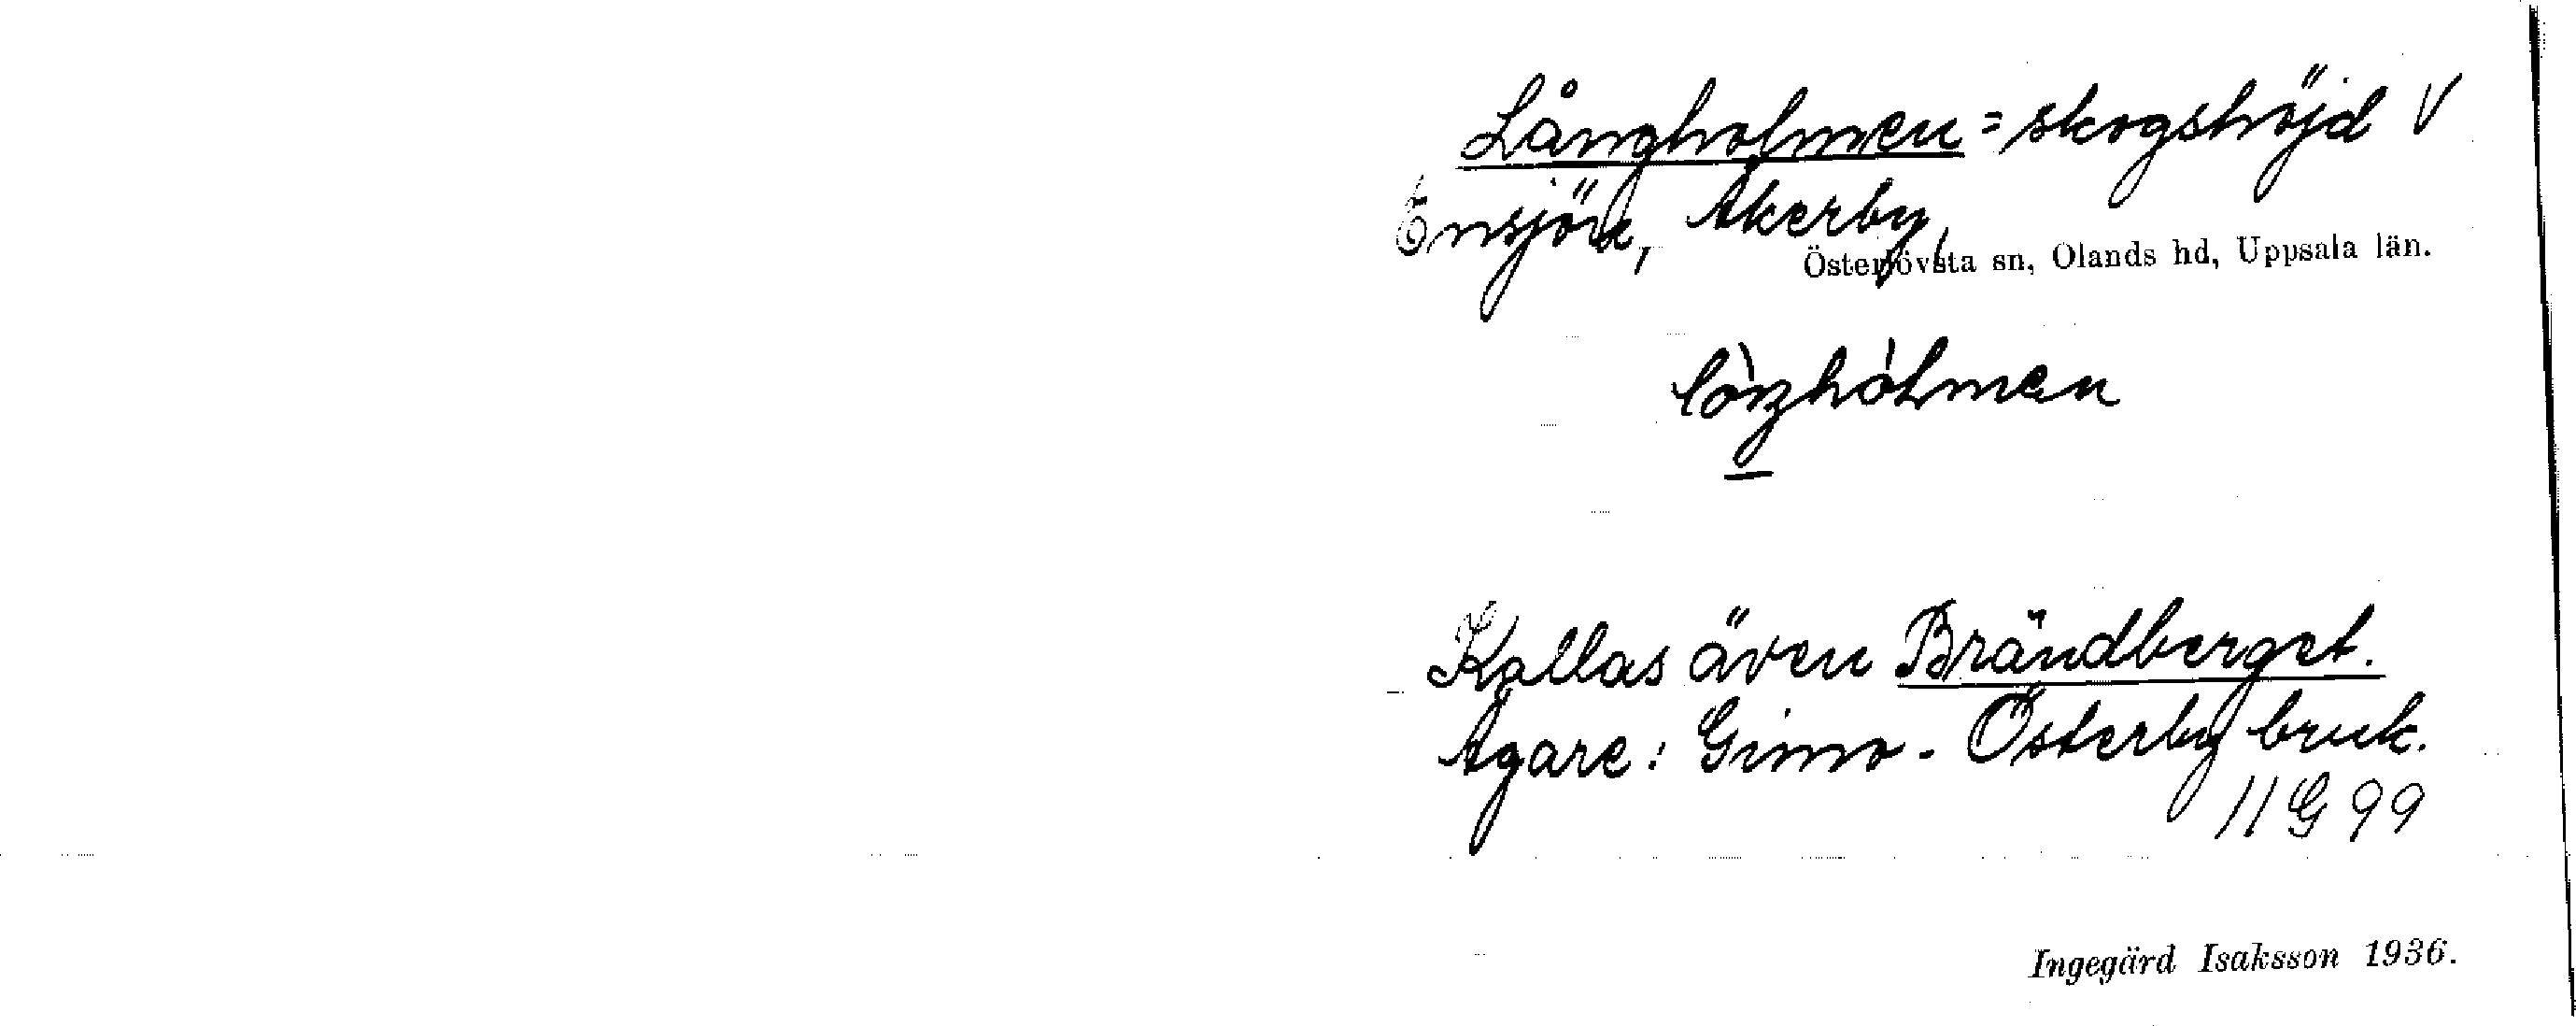 Långholmen = skogshöjd V
Önsjön, Åkerby,
Österlövsta sn, Olands hd, Uppsala län.
Kallas även Brändberget.
Ägare: Gimo-Österby bruk.
11G 99
Ingegärd Isaksson 1936.